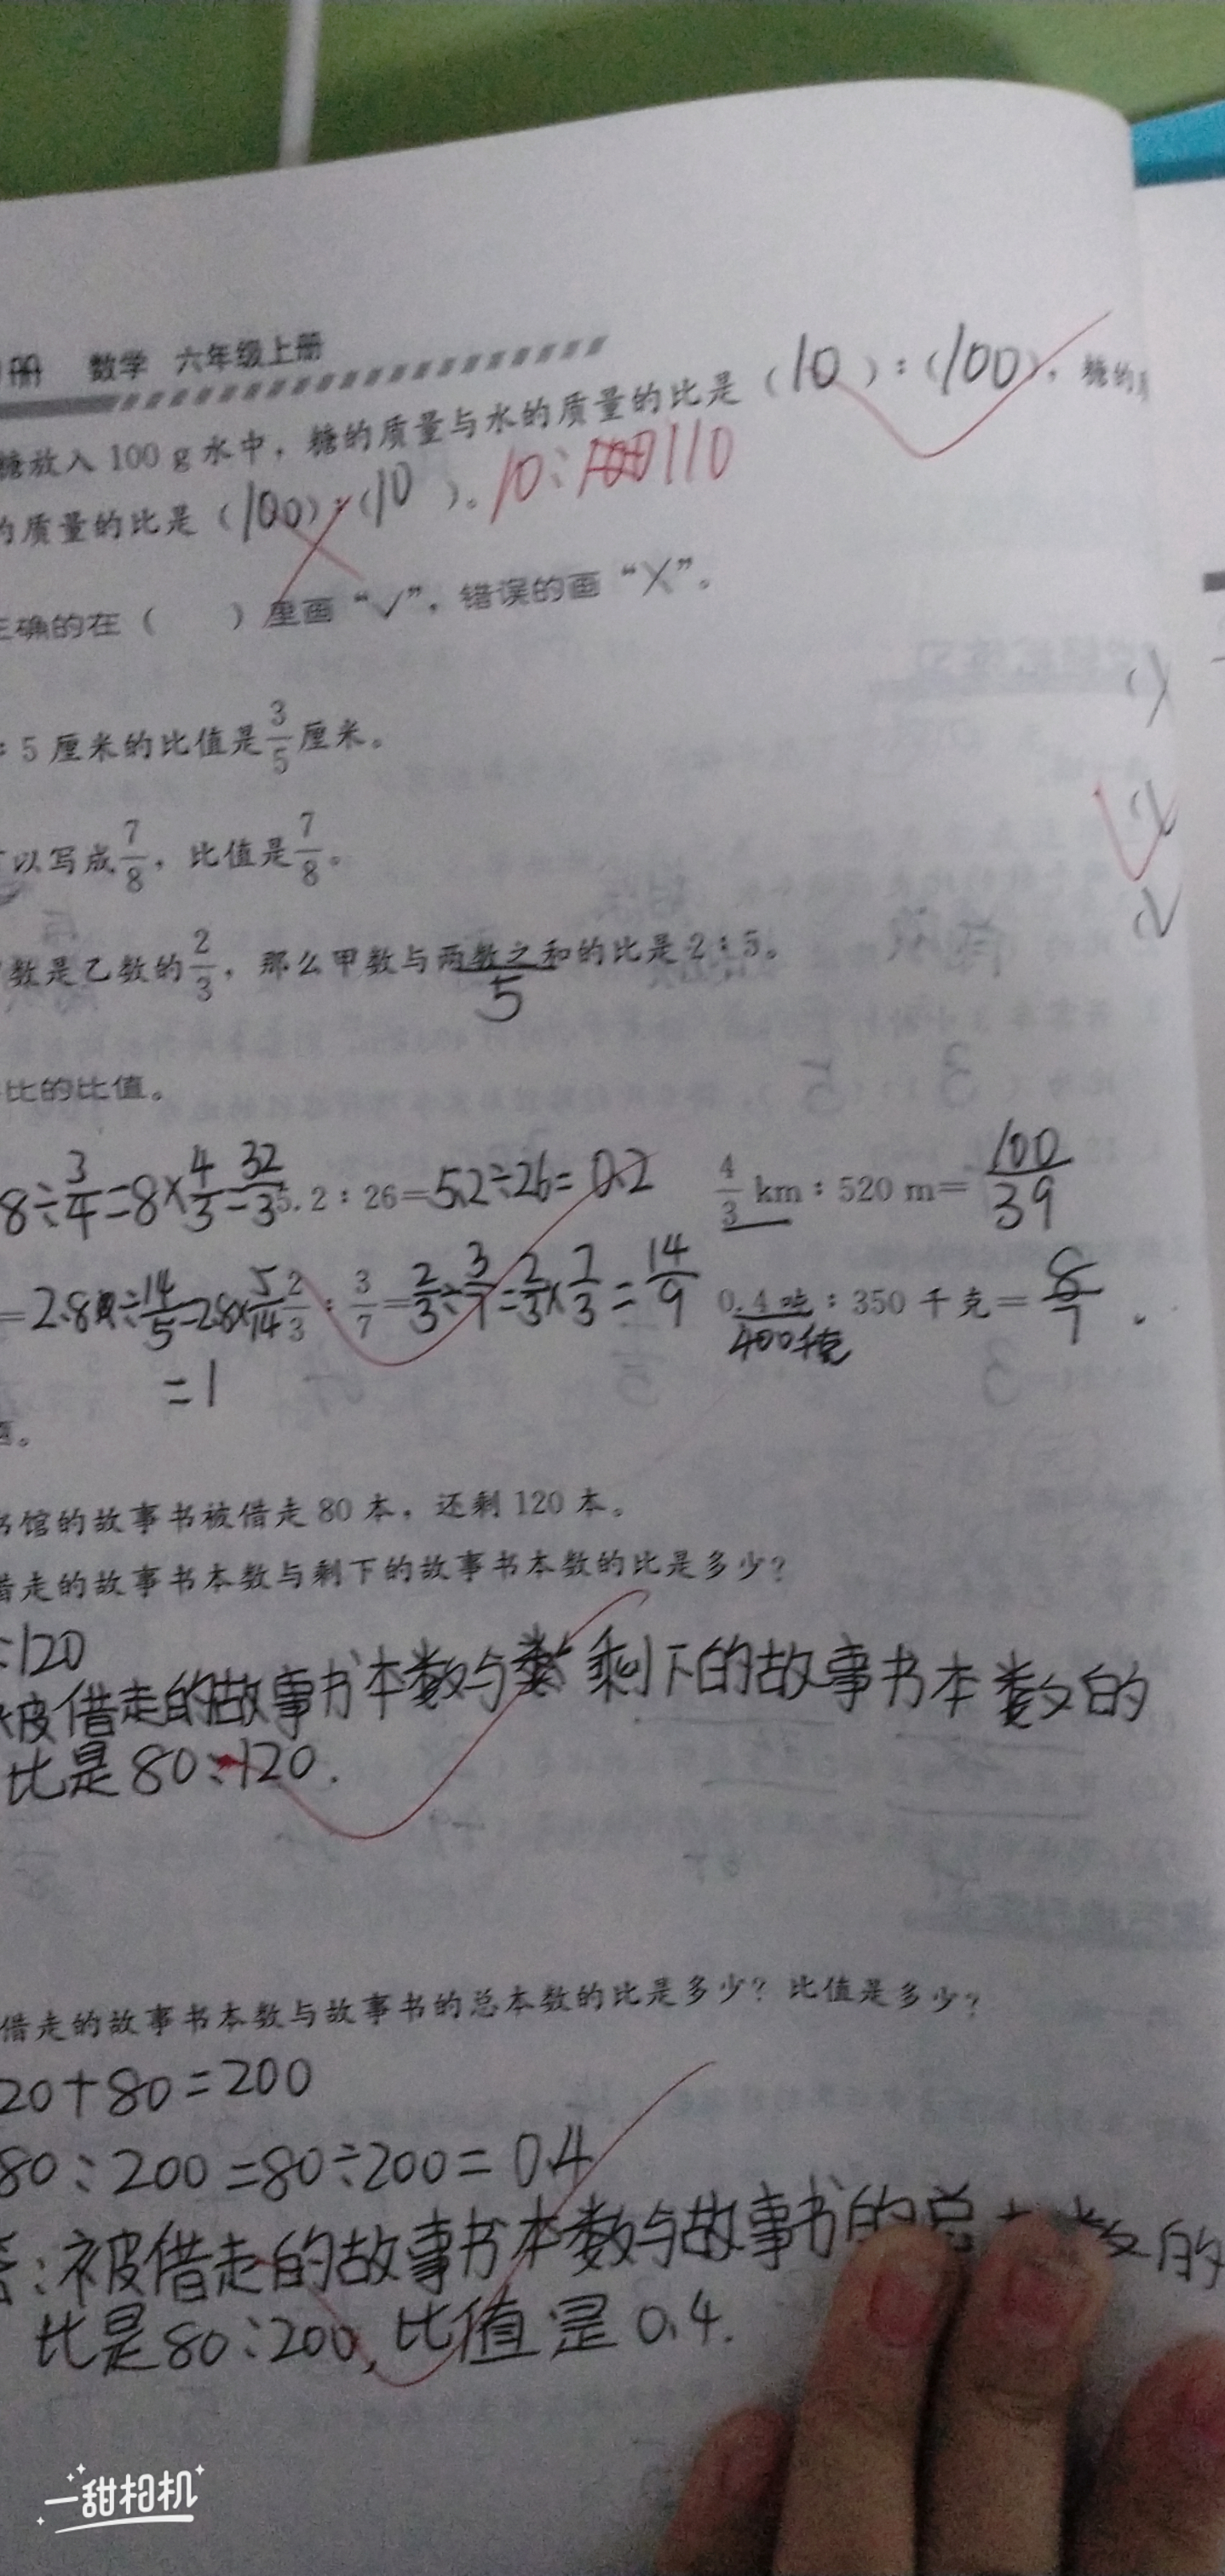 册 数学 六年级上册
糖放入100 g水中，糖的质量与水的质量的比是（10）:（100），糖的
的质量的比是（100）:（10）。10:110
正确的在（ ）里画“√”，错误的画“X”。
: 5厘米的比值是3/5厘米。 (X)
以写成7/8，比值是7/8。
数是乙数的2/3，那么甲数与两数之和的比是2:5。
5
比的比值。
8÷3/4=8×4/3=32/3 5.2:26=5.2÷26=0.2 4/3 km:520 m=100/39
=2.8÷14/5=2.8×5/14 2/3:3/7=2/3÷3/7=2/3×7/3=14/9 0.4吨:350千克=8/7.
=1 400千克
题。
书馆的故事书被借走80本，还剩120本。
借走的故事书本数与剩下的故事书本数的比是多少?
:120
被借走的故事书本数与剩下的故事书本数的
比是80:120.
借走的故事书本数与故事书的总本数的比是多少?比值是多少?
20+80=200
80:200=80÷200=0.4
答:被借走的故事书本数与故事书的总 数的
比是80:200,比值是0.4.
一甜相机